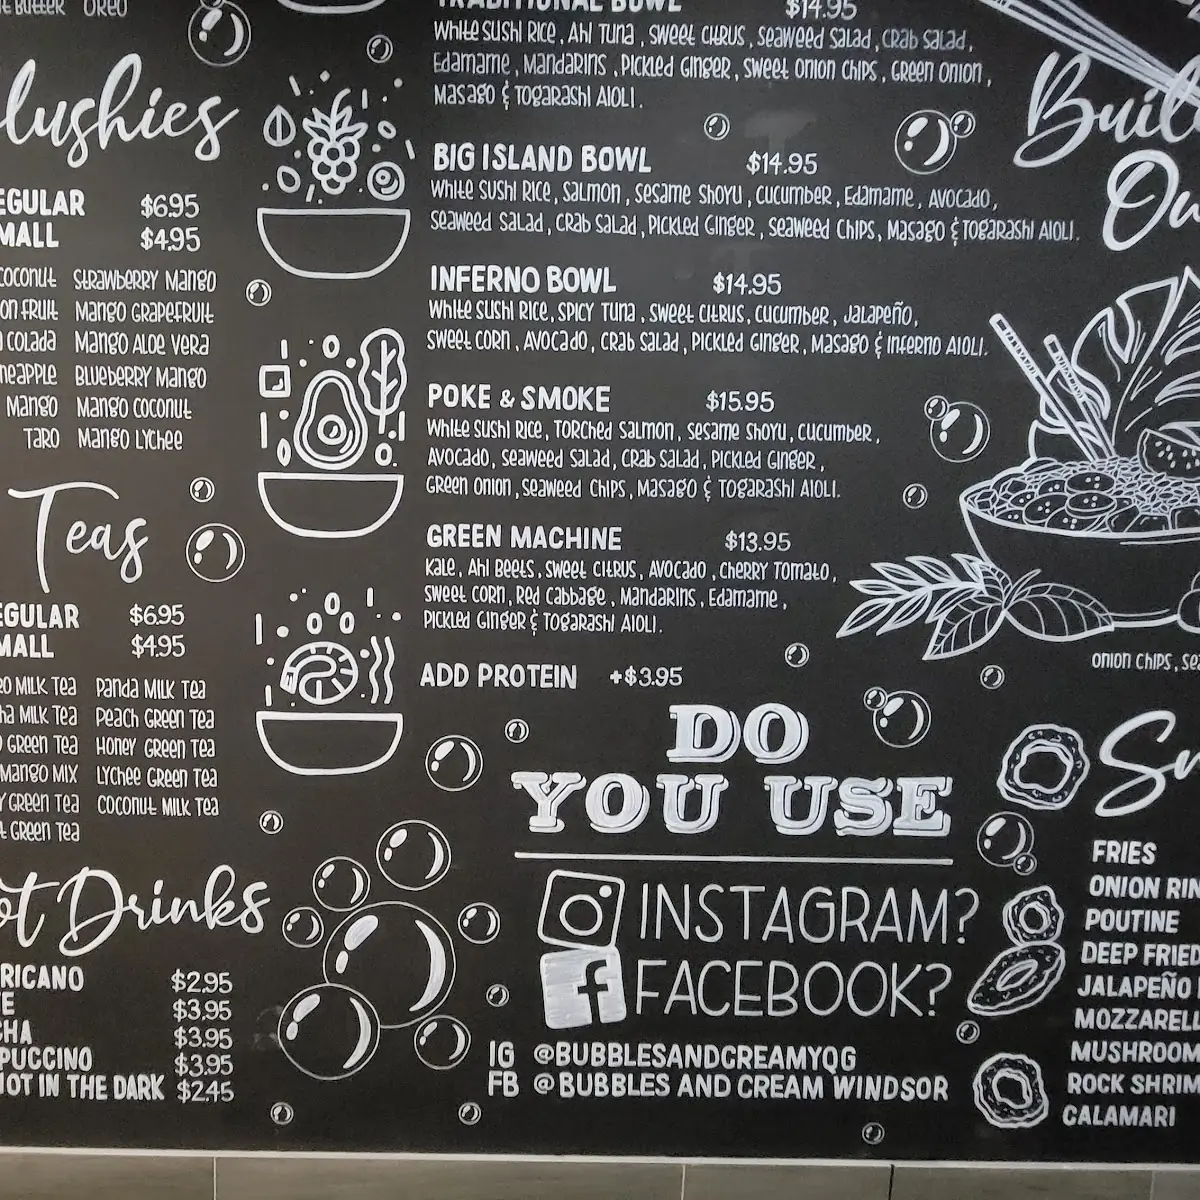 OREO
lushies
$6.95
$4.95
COCONUT STRAWBERRY MANGO
FRUIT MANGO GRAPEFRUIT
COLADA MANGO ALOE VERA
BLUEBERRY MANGO
MANGO MANGO COCONUT
TARO MANGO LYCHEE
Teas
$6.95
$4.95
MILK TEA PANDA MILK TEA
MILK TEA PEACH GREEN TEA
GREEN TEA HONEY GREEN TEA
MANGO MIX LYCHEE GREEN TEA
GREEN TEA COCONUT MILK TEA
GREEN TEA
Drinks
RICANO $2.95
$3.95
$3.95
PUCCINO $3.95
IN THE DARK $2.45
TRADITIONAL BOWL $14.95
WHITE SUSHI RICE, AHI TUNA, SWEET CITRUS, SEAWEED SALAD, CRAB SALAD,
EDAMAME, MANDARINS, PICKLED GINGER, SWEET ONION CHIPS, GREEN ONION,
MASAGO & TOGARASHI AIOLI.
BIG ISLAND BOWL $14.95
WHITE SUSHI RICE, SALMON, SESAME SHOYU, CUCUMBER, EDAMAME, AVOCADO,
SEAWEED SALAD, CRAB SALAD, PICKLED GINGER, SEAWEED CHIPS, MASAGO & TOGARASHI AIOLI.
INFERNO BOWL $14.95
WHITE SUSHI RICE, SPICY TUNA, SWEET CITRUS, CUCUMBER, JALAPEÑO,
SWEET CORN, AVOCADO, CRAB SALAD, PICKLED GINGER, MASAGO & INFERNO AIOLI.
POKE & SMOKE $15.95
WHITE SUSHI RICE, TORCHED SALMON, SESAME SHOYU, CUCUMBER,
AVOCADO, SEAWEED SALAD, CRAB SALAD, PICKLED GINGER,
GREEN ONION, SEAWEED CHIPS, MASAGO & TOGARASHI AIOLI.
GREEN MACHINE $13.95
KALE, AHI BEETS, SWEET CITRUS, AVOCADO, CHERRY TOMATO,
SWEET CORN, RED CABBAGE, MANDARINS, EDAMAME,
PICKLED GINGER & TOGARASHI AIOLI.
ADD PROTEIN +$3.95
DO
YOU USE
INSTAGRAM?
FACEBOOK?
IG @BUBBLESANDCREAMYQG
FB @BUBBLES AND CREAM WINDSOR
ONION CHIPS,
FRIES
ONION
POUTINE
DEEP FRIED
JALAPEÑO
MOZZARELL
MUSHROOM
ROCK SHRIM
CALAMARI